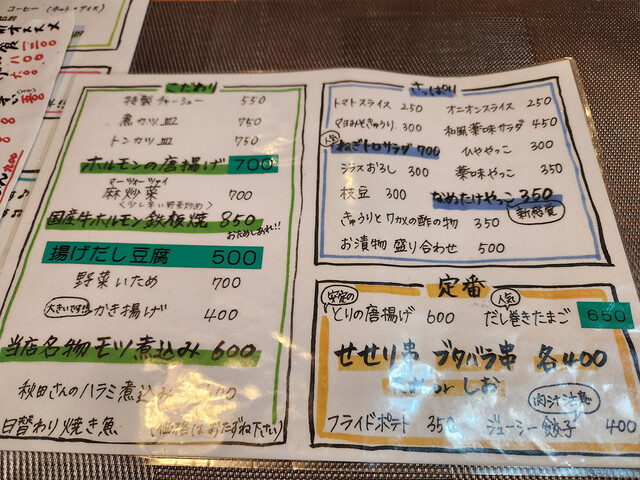 コーヒー (ホット・アイス)
こだわり
特製チャーシュー 550
煮カツ皿 750
トンカツ皿 750
ホルモンの唐揚げ 700
マーツァーツァイ
麻炒菜 700
(少し辛い野菜炒め)
国産牛ホルモン鉄板焼 850
おためしあれ!!
揚げだし豆腐 500
野菜いため 700
大きいですョ かき揚げ 400
当店名物 モツ煮込み 600
秋田さんのハラミ煮込み
日替わり焼き魚 (価格はおたずね下さい)
さっぱり
トマトスライス 250 オニオンスライス 250
マヨみそきゅうり 300 和風薬味サラダ 450
人気 ねぎトロサラダ 700 ひややっこ 300
シラスおろし 300 薬味やっこ 350
枝豆 300 なめたけやっこ 350
新感覚
きゅうりとワカメの酢の物 350
お漬物 盛り合わせ 500
定番
安定の とりの唐揚げ 600 人気 だし巻きたまご 650
せせり串 ブタバラ串 各400
たれ or しお
肉汁注意
フライドポテト 350 ジューシー餃子 400